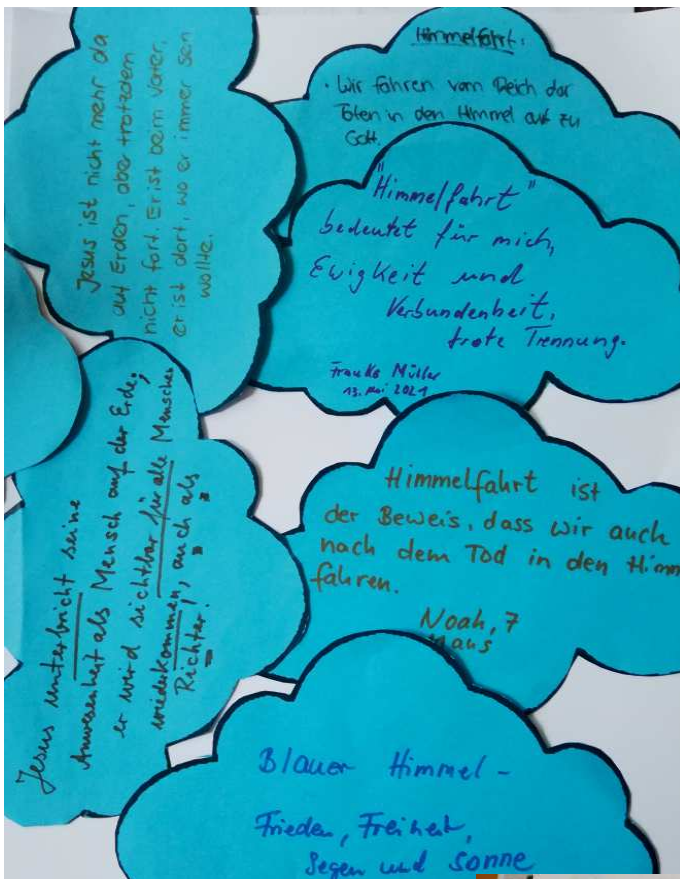 Jesus ist nicht mehr da
auf Erden, aber trotzdem
nicht fort. Er ist beim Vater,
er ist dort, wo er immer sen
wollte.
Himmelfahrt:
• Wir fahren vom Reich der
Toten in den Himmel auf zu
Gott.
"Himmelfahrt"
bedeutet für mich,
Ewigkeit und
Verbundenheit,
trotz Trennung.
Frauke Müller
13. Mai 2021
Jesus unterbricht seine
Anwesenheit als Mensch auf der Erde;
er wird sichtbar für alle Menschen
wiederkommen, auch als
Richter.
Himmelfahrt ist
der Beweis, dass wir auch
nach dem Tod in den Himm
fahren.
Noah, 7
Blauer Himmel -
Frieden, Freiheit,
Segen und Sonne